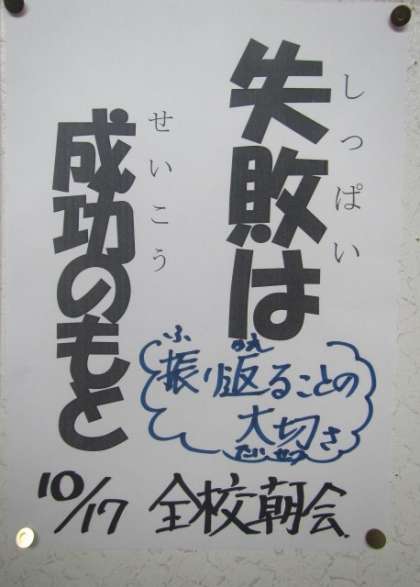 失敗は
しっぱい
成功のもと
せいこう
振り返ることの
ふ かえ
大切さ
たいせつ
10/17 全校朝会